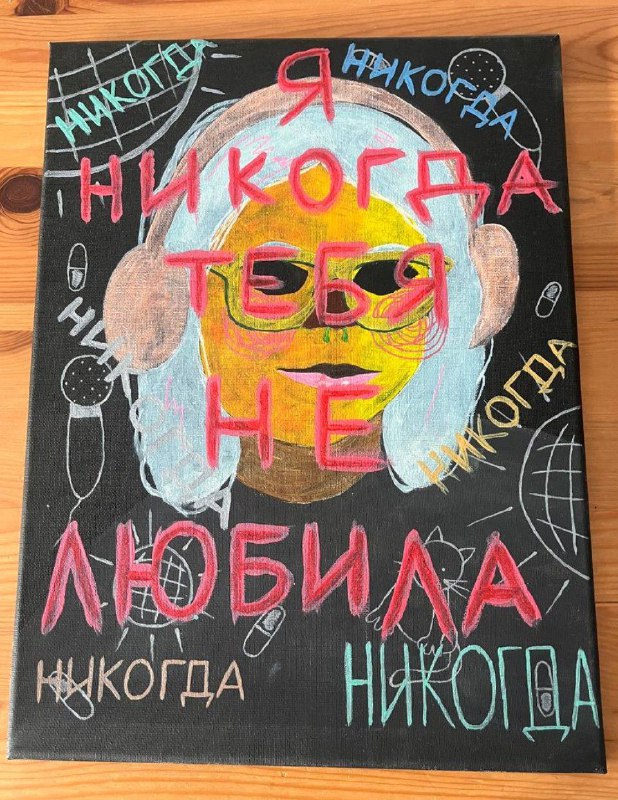 НИКОГДА
НИКОГДА
Я
НИКОГДА
ТЕБЯ
НИКОГДА
НИКОГДА
НЕ
ЛЮБИЛА
НИКОГДА
НИКОГДА